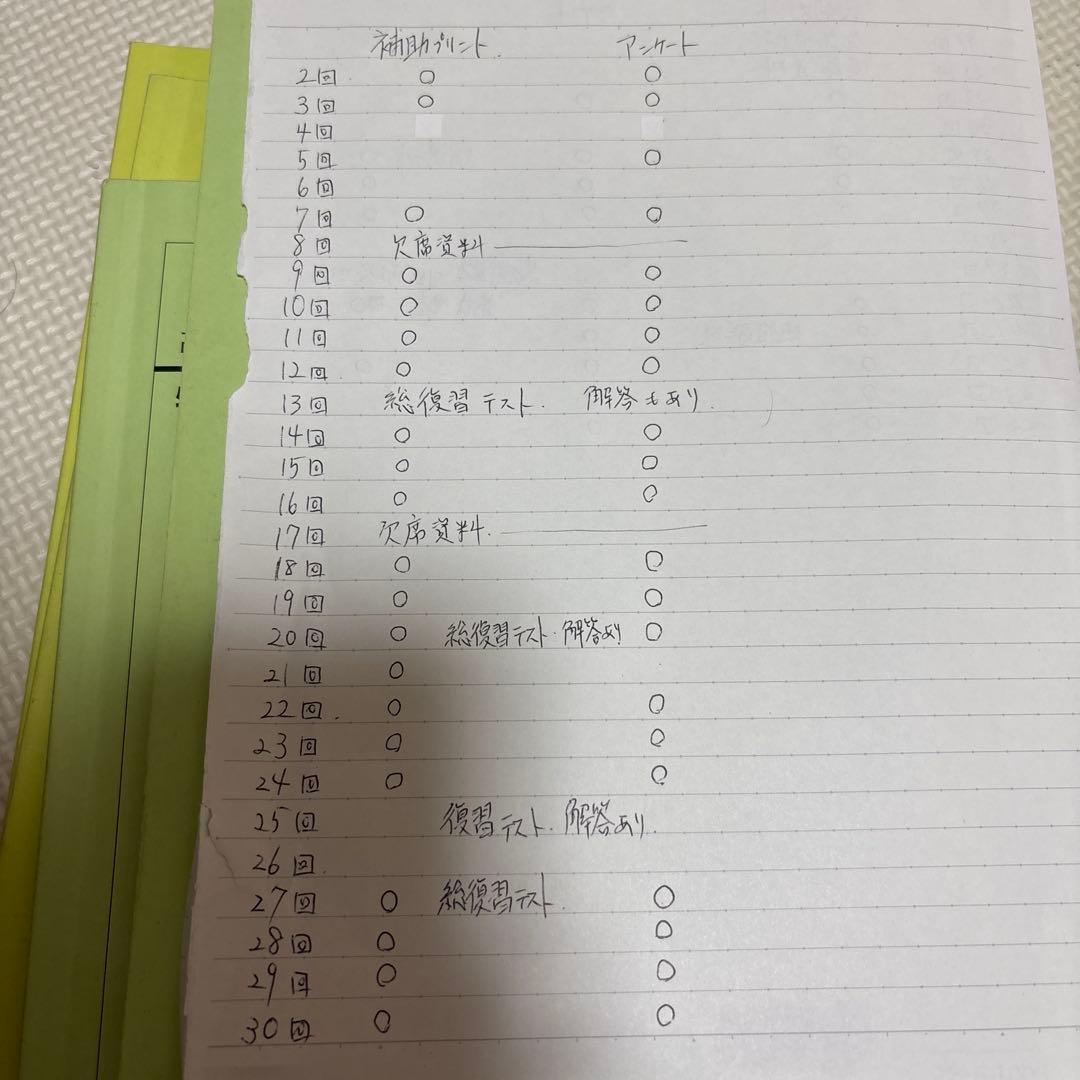 補助プリント. アンケート
2回. ○ ○
3回 ○ ○
4回
5回 ○
6回
7回 ○ ○
8回 欠席資料 ――――
9回 ○ ○
10回 ○ ○
11回 ○ ○
12回. ○ ○
13回 総復習テスト. 解答もあり.
14回 ○ ○
15回 ○ ○
16回 ○ ○
17回 欠席資料. ――――
18回 ○ ○
19回 ○ ○
20回 ○ 総復習テスト・解答あり ○
21回 ○
22回. ○ ○
23回 ○ ○
24回 ○ ○
25回 復習テスト・解答あり.
26回.
27回 ○ 総復習テスト. ○
28回 ○ ○
29回 ○ ○
30回 ○ ○